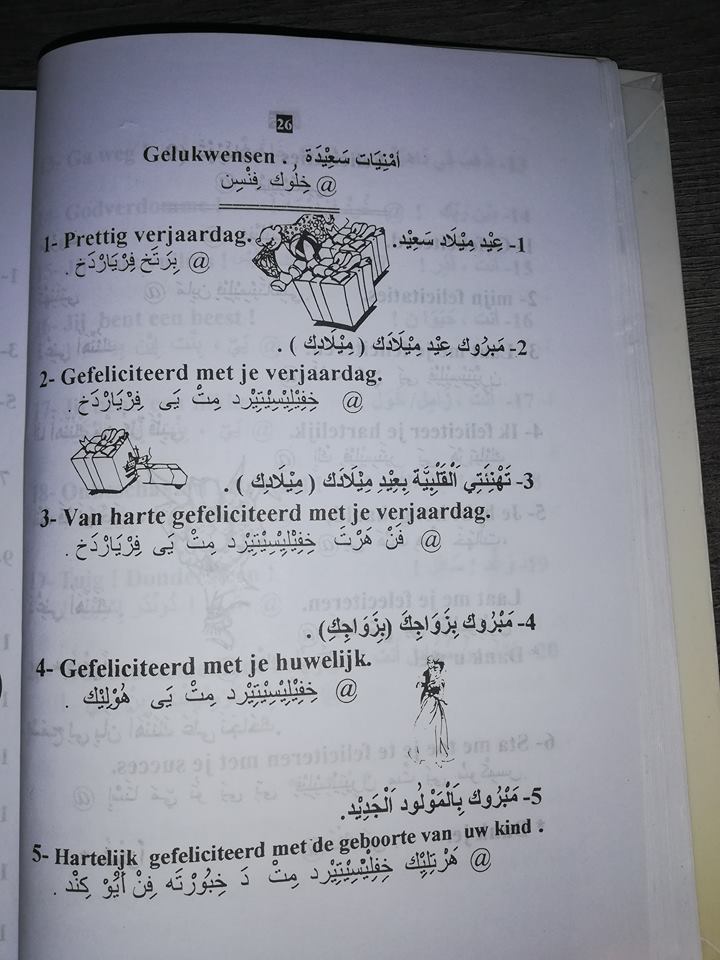 26
Gelukwensen . , أمْنِيَات سَعِيْدَة
@ خِلُوك فِنْسِن
1- Prettig verjaardag. 1- عِيْد مِيْلَاد سَعِيْد.
@ بِرَتَخ فِرْيَارْدَخ .
2- مَبْرُوك عِيْد مِيْلَادَك ( مِيْلَادِك ) .
2- Gefeliciteerd met je verjaardag.
@ خِفِيْلِيْسِيْتِيْرْد مِتْ يَى فِرْيَارْدَخ .
3- تَهْنَئَتِي اَلْقَلْبِيَّة بِعِيْدِ مِيْلَادَك ( مِيْلَادِك ) .
3- Van harte gefeliciteerd met je verjaardag.
@ فَنْ هَرْتَ خِفِيْلِيْسِيْتِيْرْد مِتْ يَى فِرْيَارْدَخ .
4- مَبْرُوك بِزَوَاجِكَ (بِزَوَاجِكِ) .
4- Gefeliciteerd met je huwelijk.
@ خِفِيْلِيْسِيْتِيْرْد مِتْ يَى هُوْلِيْك .
5- مَبْرُوك بِاَلْمَوْلُود اَلْجَدِيْد.
5- Hartelijk gefeliciteerd met de geboorte van uw kind .
@ هَرْتِلِيْك خِفِلِيْسِيْتِيْرد مِتْ دَ خِبُوْرْتَه فِنْ أَيُوْ كِنْد .